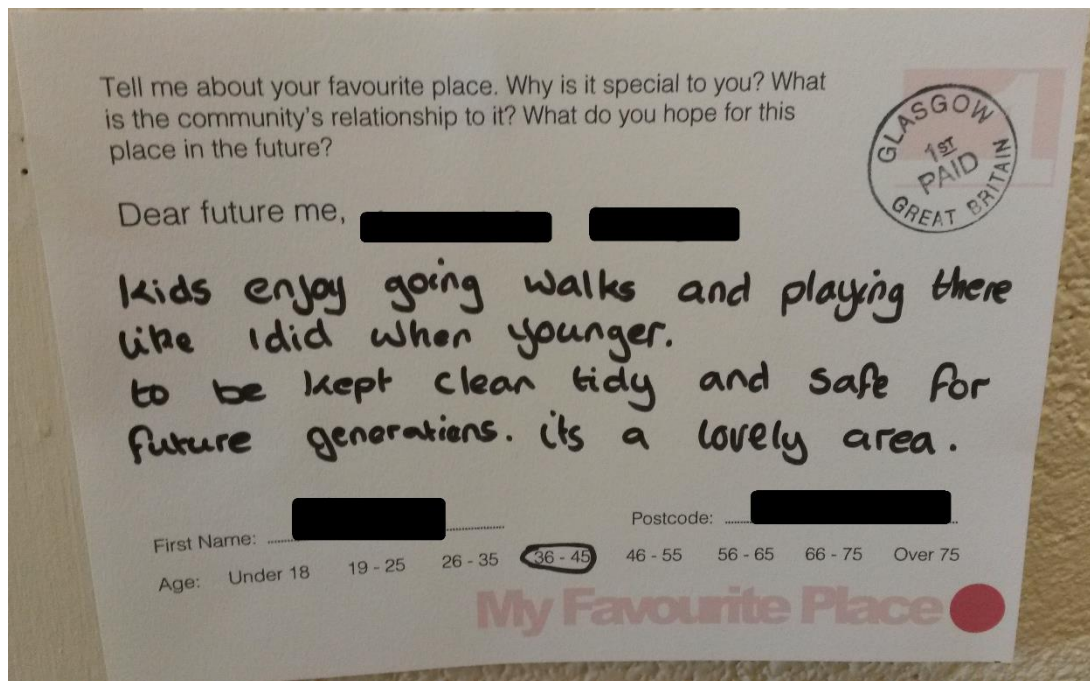 Tell me about your favourite place. Why is it special to you? What
is the community's relationship to it? What do you hope for this
place in the future?
GLASGOW
1ST
PAID
GREAT BRITAIN
1
Dear future me,
kids enjoy going walks and playing there
like I did when younger.
to be kept clean tidy and safe for
future generations. its a lovely area.
First Name:
Postcode:
Age: Under 18 19 - 25 26 - 35 36 - 45 46 - 55 56 - 65 66 - 75 Over 75
My Favourite Place